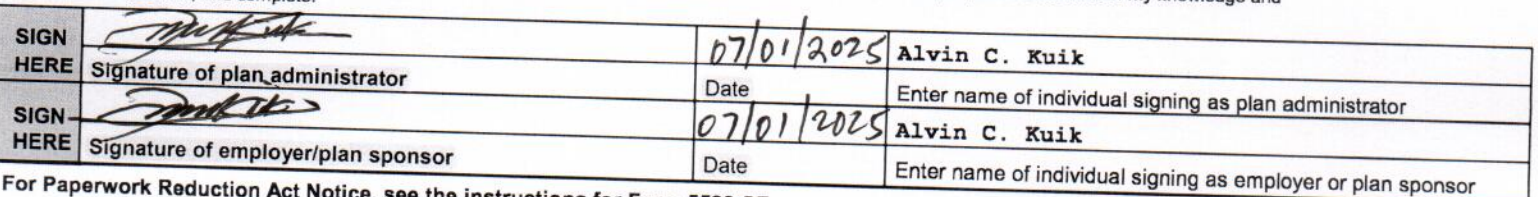 SIGN HERE
07/01/2025 Alvin C. Kuik
Signature of plan administrator Date Enter name of individual signing as plan administrator
SIGN HERE
07/01/2025 Alvin C. Kuik
Signature of employer/plan sponsor Date Enter name of individual signing as employer or plan sponsor
For Paperwork Reduction Act Notice, see the instructions for Form